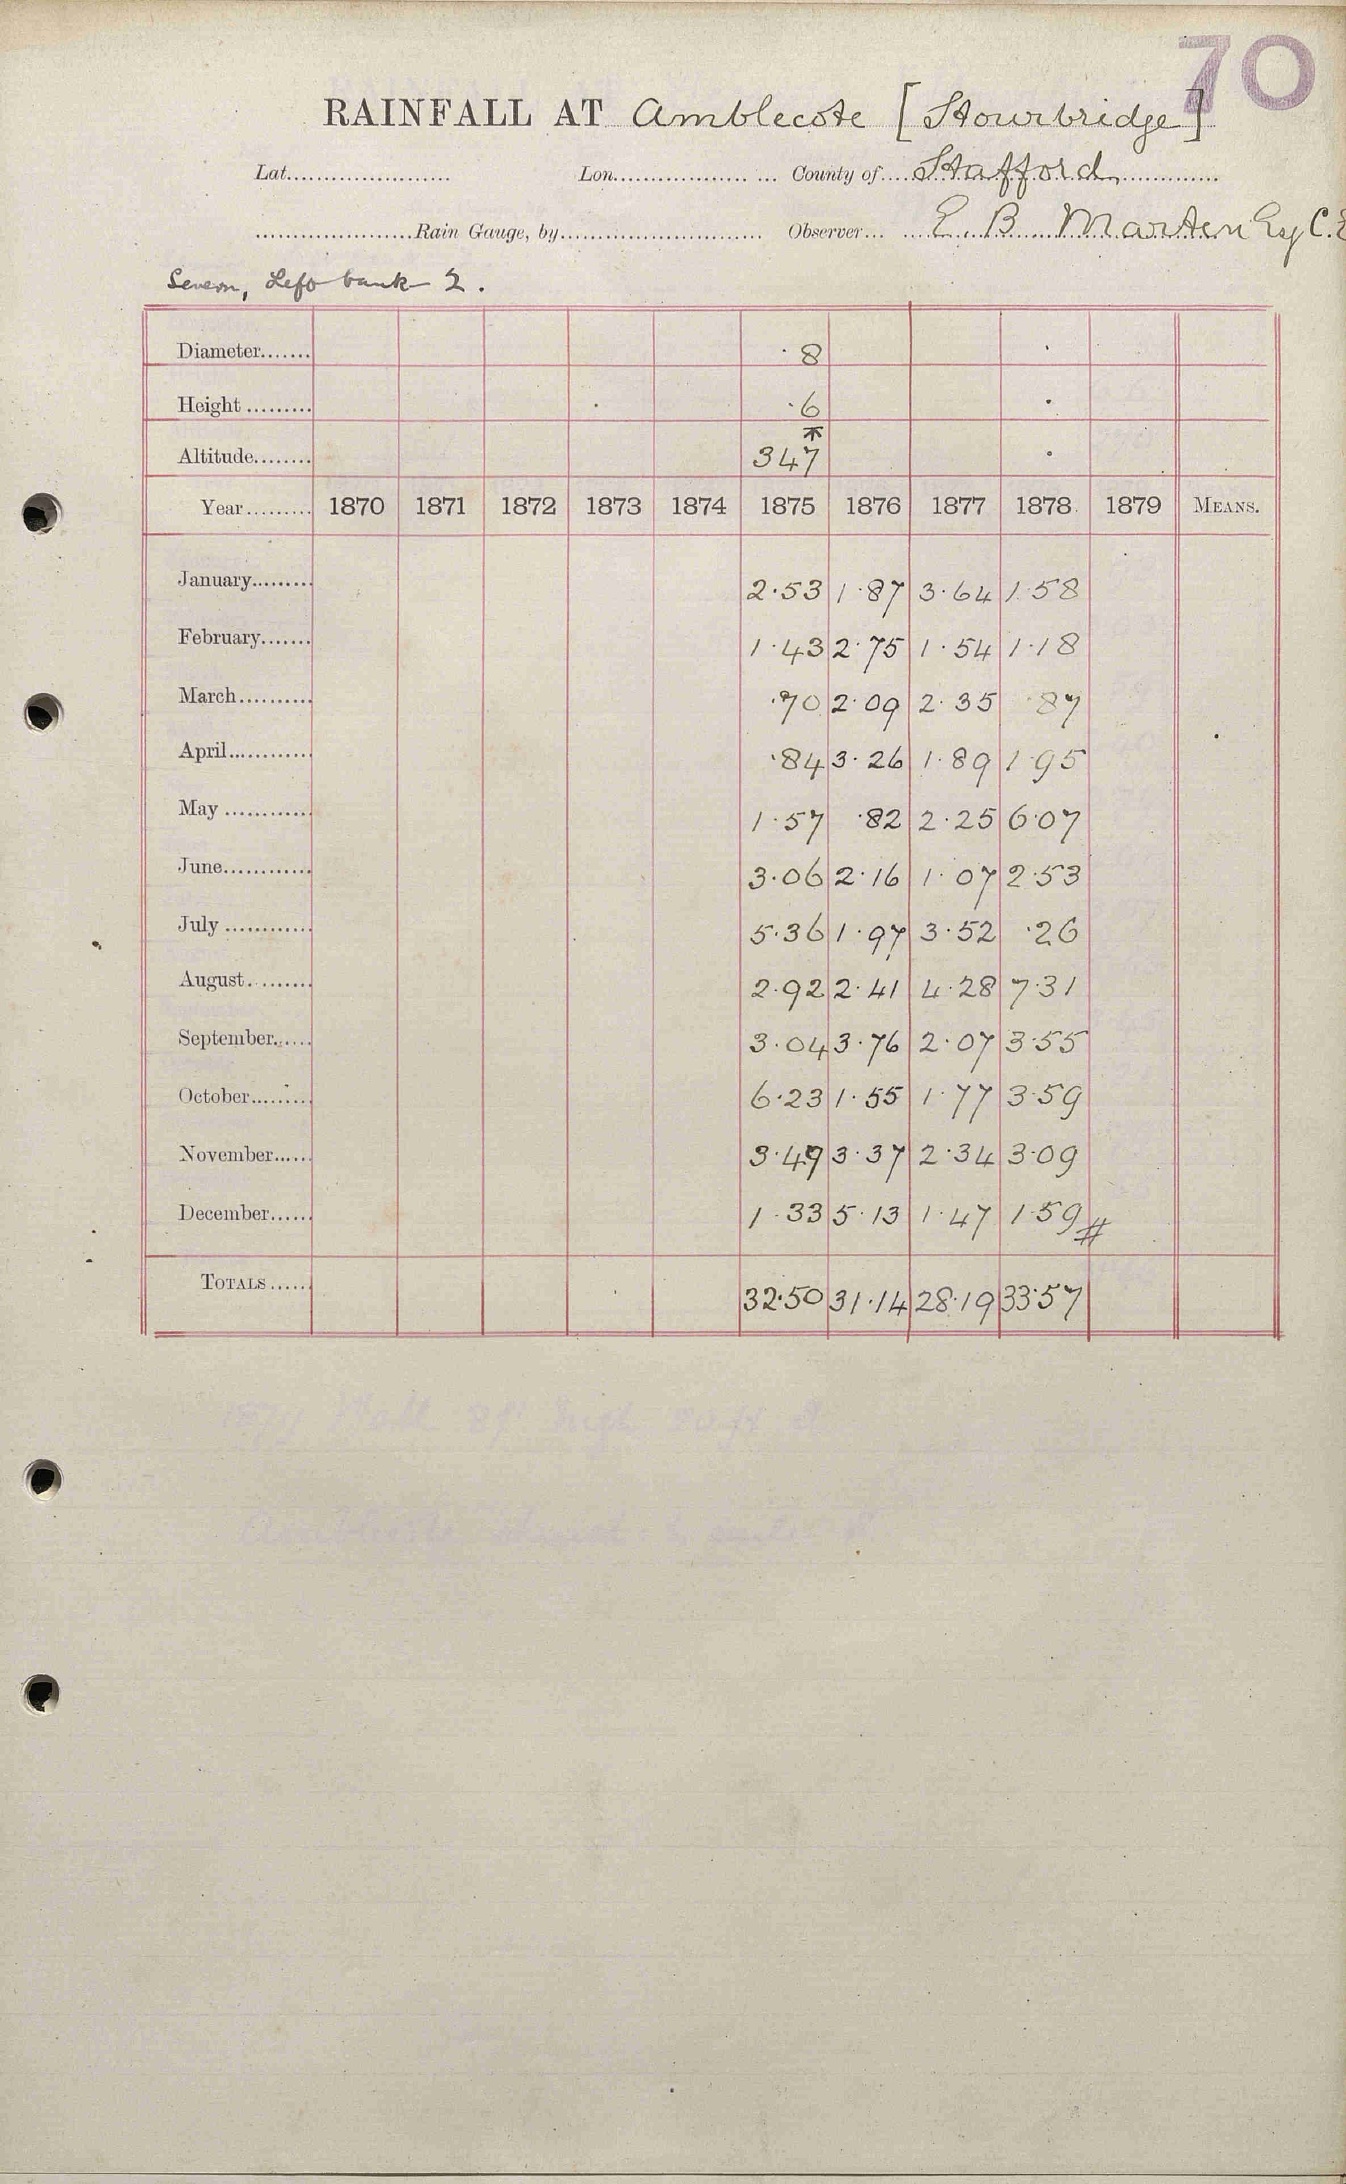 70
RAINFALL AT Amblecote [Stourbridge]
Lat. Lon. County of Stafford
Rain Gauge, by Observer E. B. Marten Esq C.E
Severn, Left bank 2.
Diameter 8
Height .6
Altitude 347 *
Year 1870 1871 1872 1873 1874 1875 1876 1877 1878 1879 MEANS.
January 2.53 1.87 3.64 1.58
February 1.43 2.75 1.54 1.18
March .70 2.09 2.35 .87
April .84 3.26 1.89 1.95
May 1.57 .82 2.25 6.07
June 3.06 2.16 1.07 2.53
July 5.36 1.97 3.52 .26
August 2.92 2.41 4.28 7.31
September 3.04 3.76 2.07 3.55
October 6.23 1.55 1.77 3.59
November 3.49 3.37 2.34 3.09
December 1.33 5.13 1.47 1.59 #
TOTALS 32.50 31.14 28.19 33.57